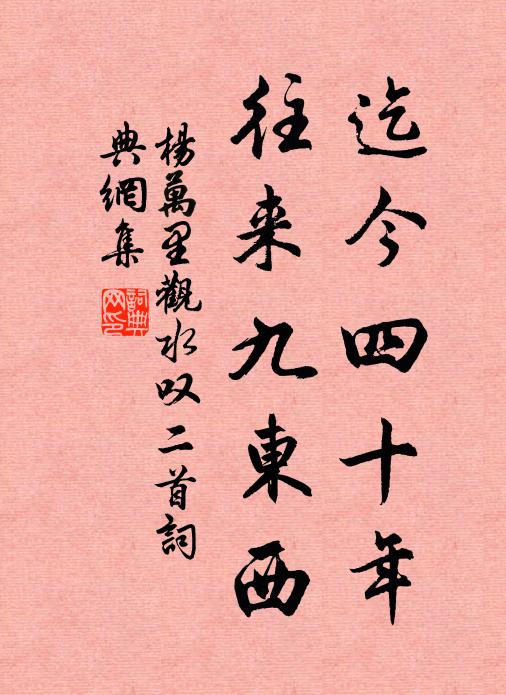 迄今四十年
往来九東西
楊萬里觀水叹二首詞
典網集
詞典网印